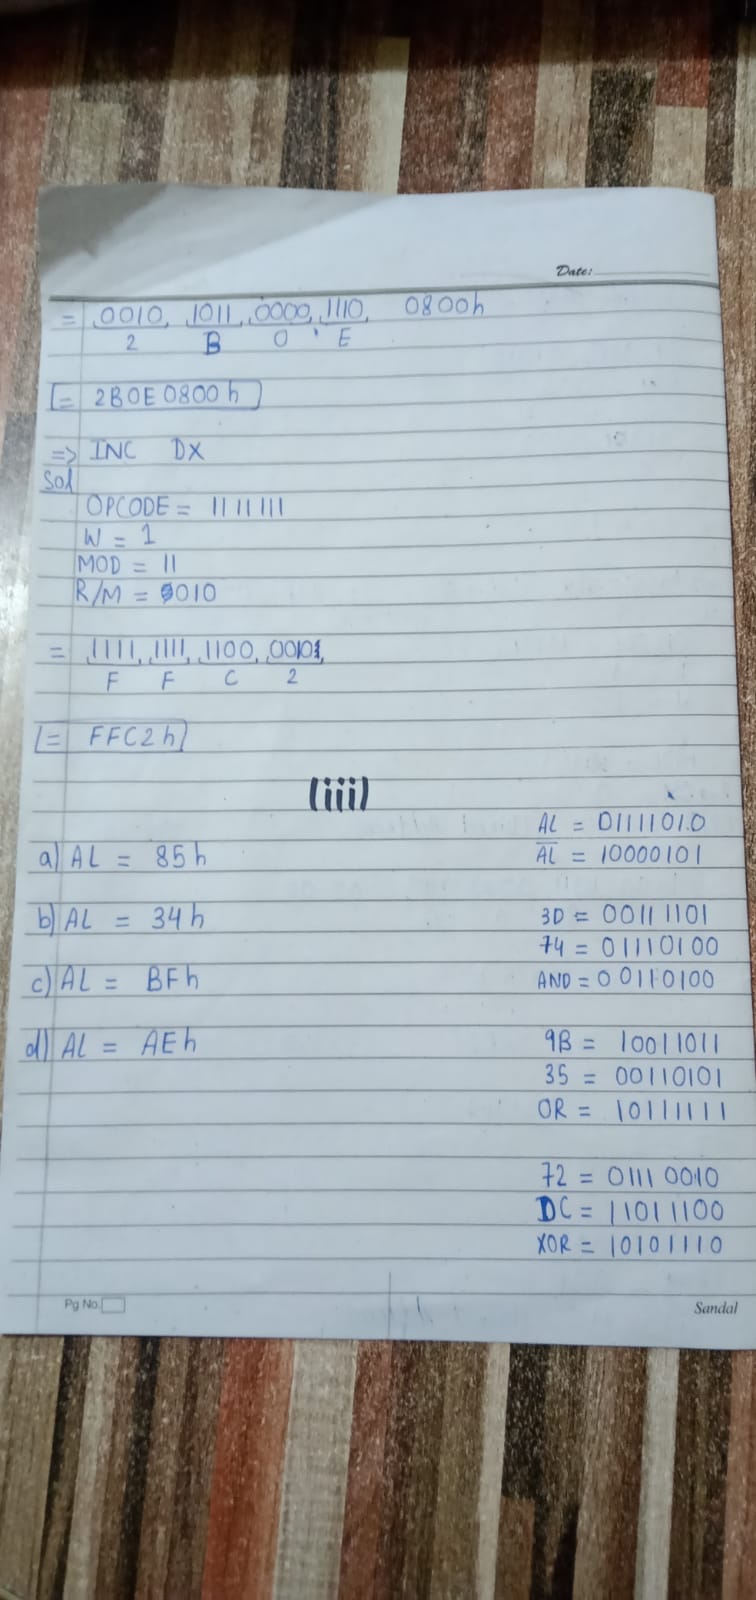 Date:
= 0010, 1011, 0000, 1110, 0800h
2 B 0 E
= 2B0E0800h
=> INC DX
Sol
OPCODE = 1111111
W = 1
MOD = 11
R/M = 010
= 1111, 1111, 1100, 0010,
F F C 2
= FFC2h
(iii)
AL = 01111010
a) AL = 85h
AL = 10000101
b) AL = 34h
3D = 00111101
74 = 01110100
c) AL = BFh
AND = 00110100
d) AL = AEh
9B = 10011011
35 = 00110101
OR = 10111111
72 = 01110010
DC = 11011100
XOR = 10101110
Pg No.
Sandal